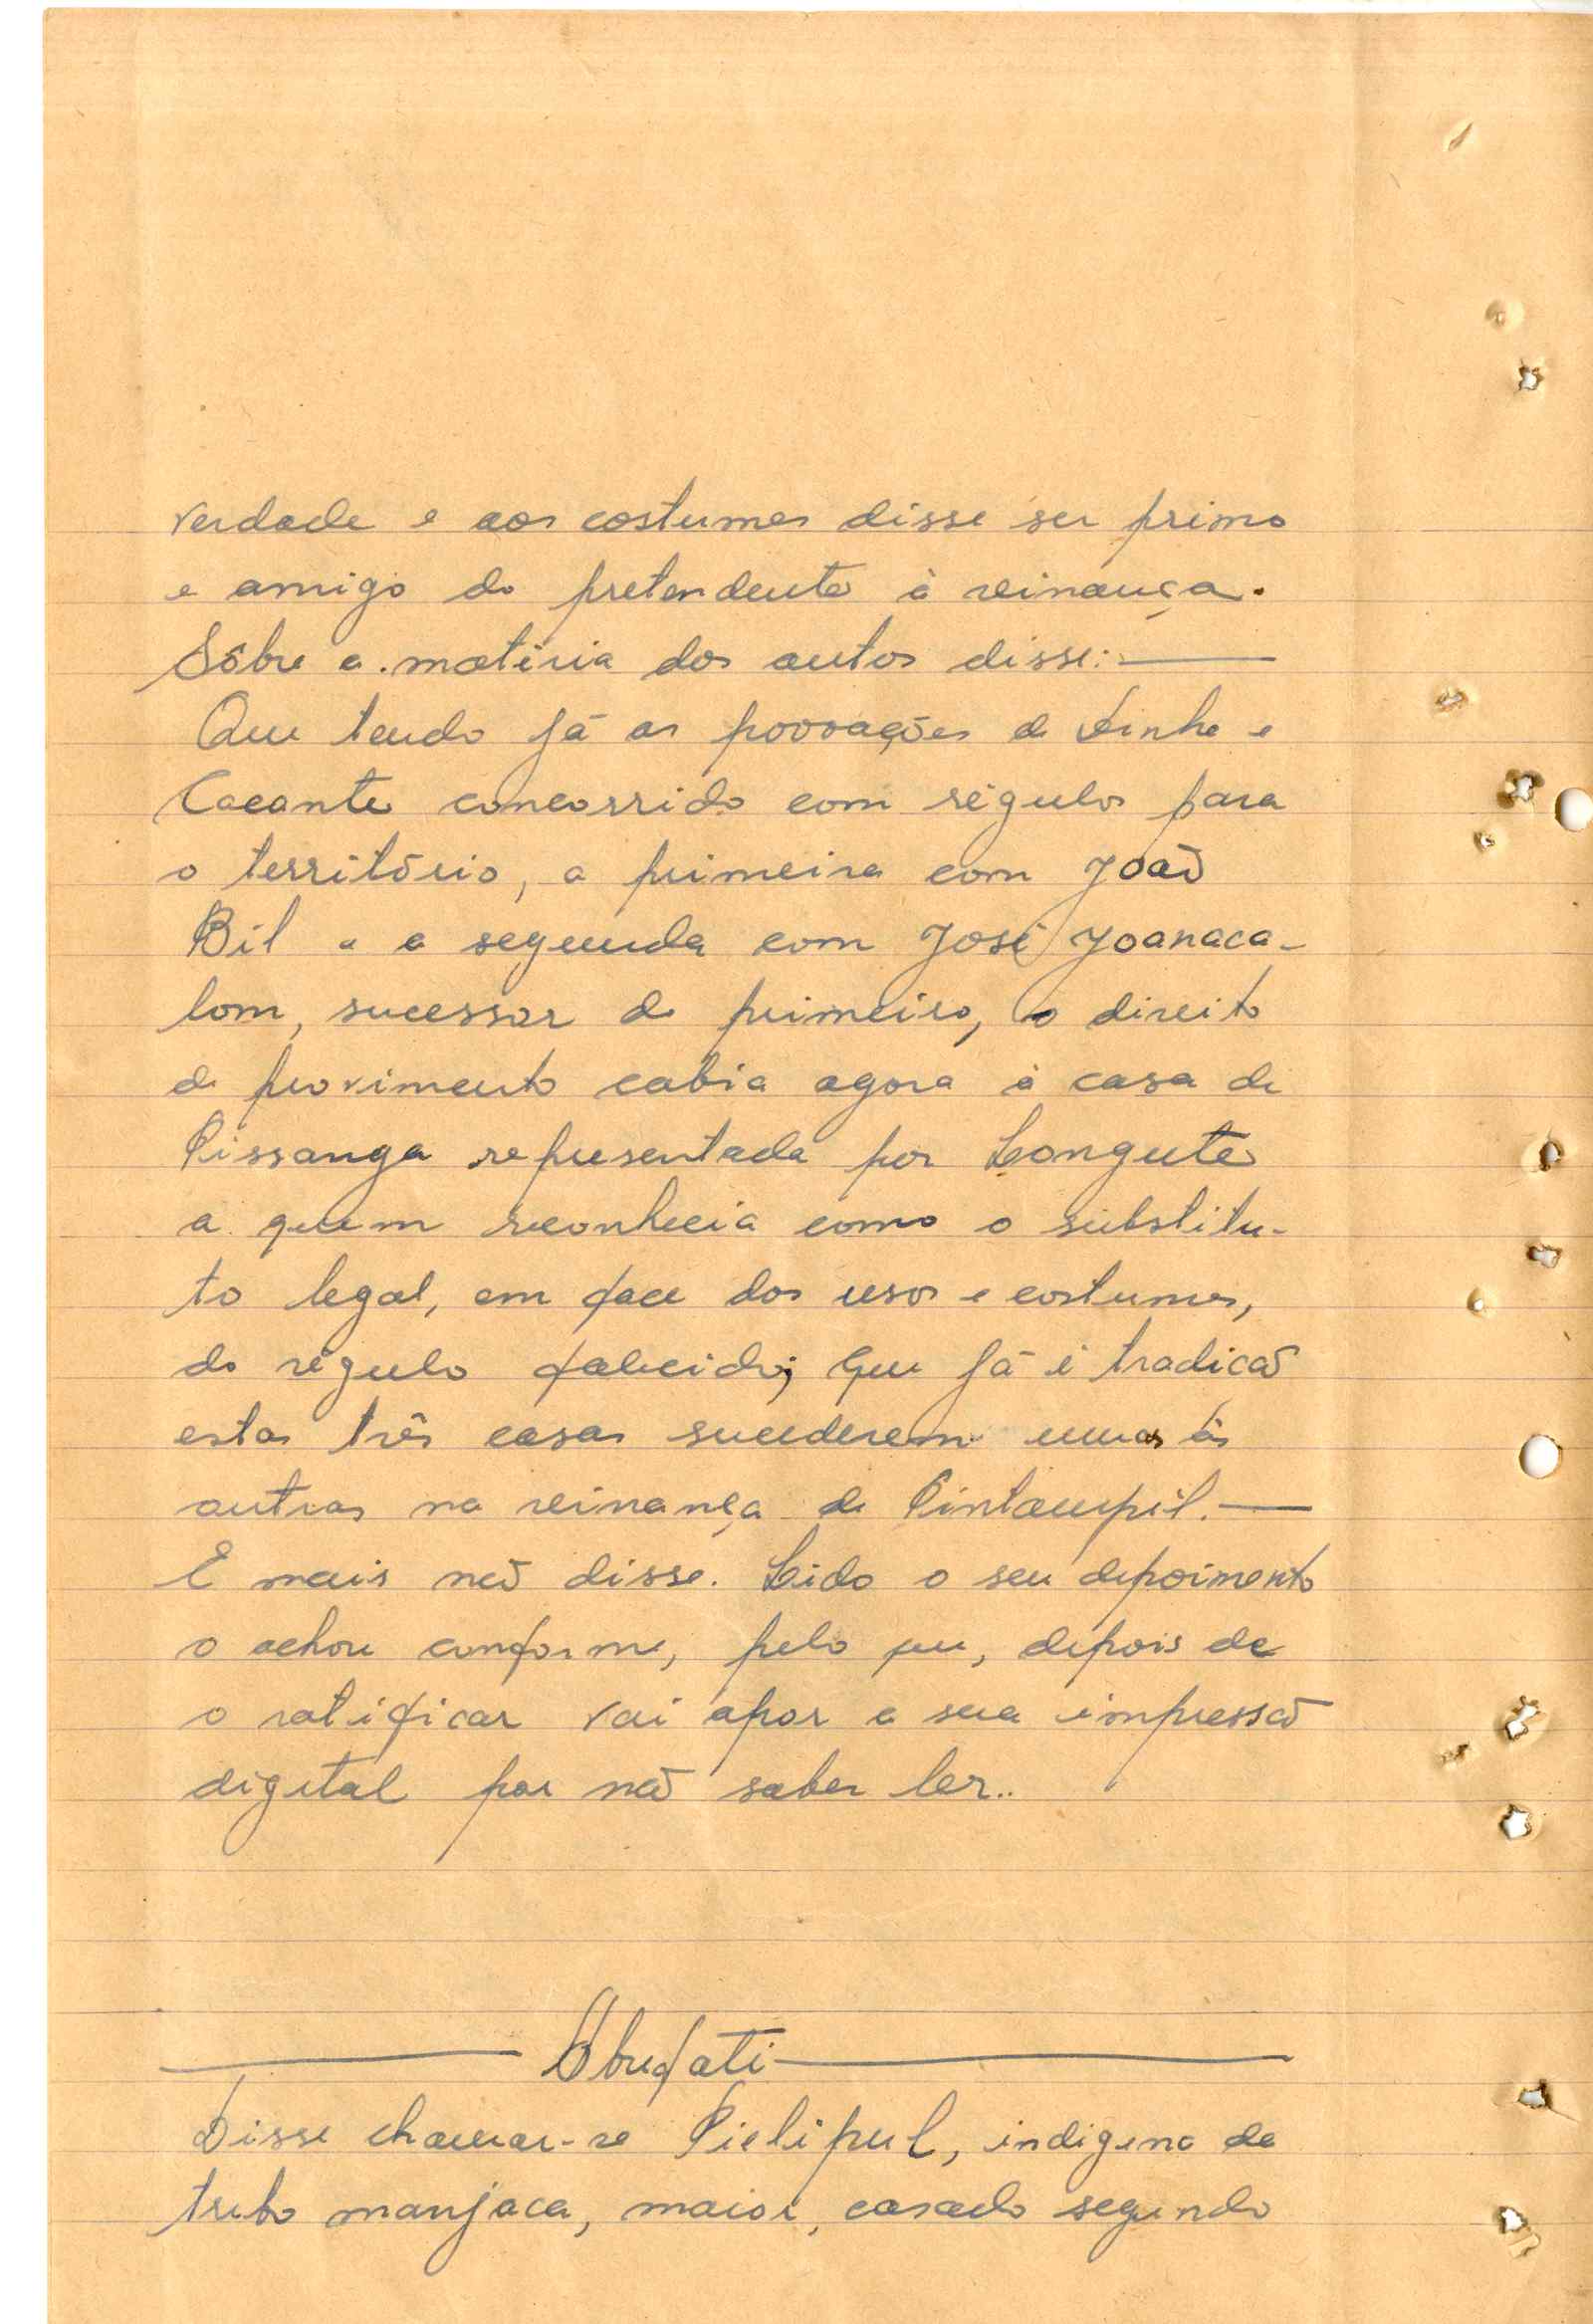 verdade e aos costumes disse ser primo
e amigo do pretendente à reinança.
Sôbre a matéria dos autos disse:
Que tendo já as povoações de Binhe e
Cacante concorrido com régulos para
o território, a primeira com João
Bil e a segunda com José Joanaca-
lom, sucessor do primeiro, o direito
de provimento cabia agora à casa de
Pissanga representada por Longute
a quem reconhecia como o substitu-
to legal, em face dos usos e costumes,
do régulo falecido; Que já é tradicão
estas três casas sucederem umas às
outras na reinança de Pintampil.
E mais não disse. Lido o seu depoimento
o achou conforme, pelo que, depois de
o ratificar vai apor a sua impressão
digital por não saber ler..
Abufati
Disse chamar-se Pielipul, indigena da
tribo manjaca, maior, casado segundo